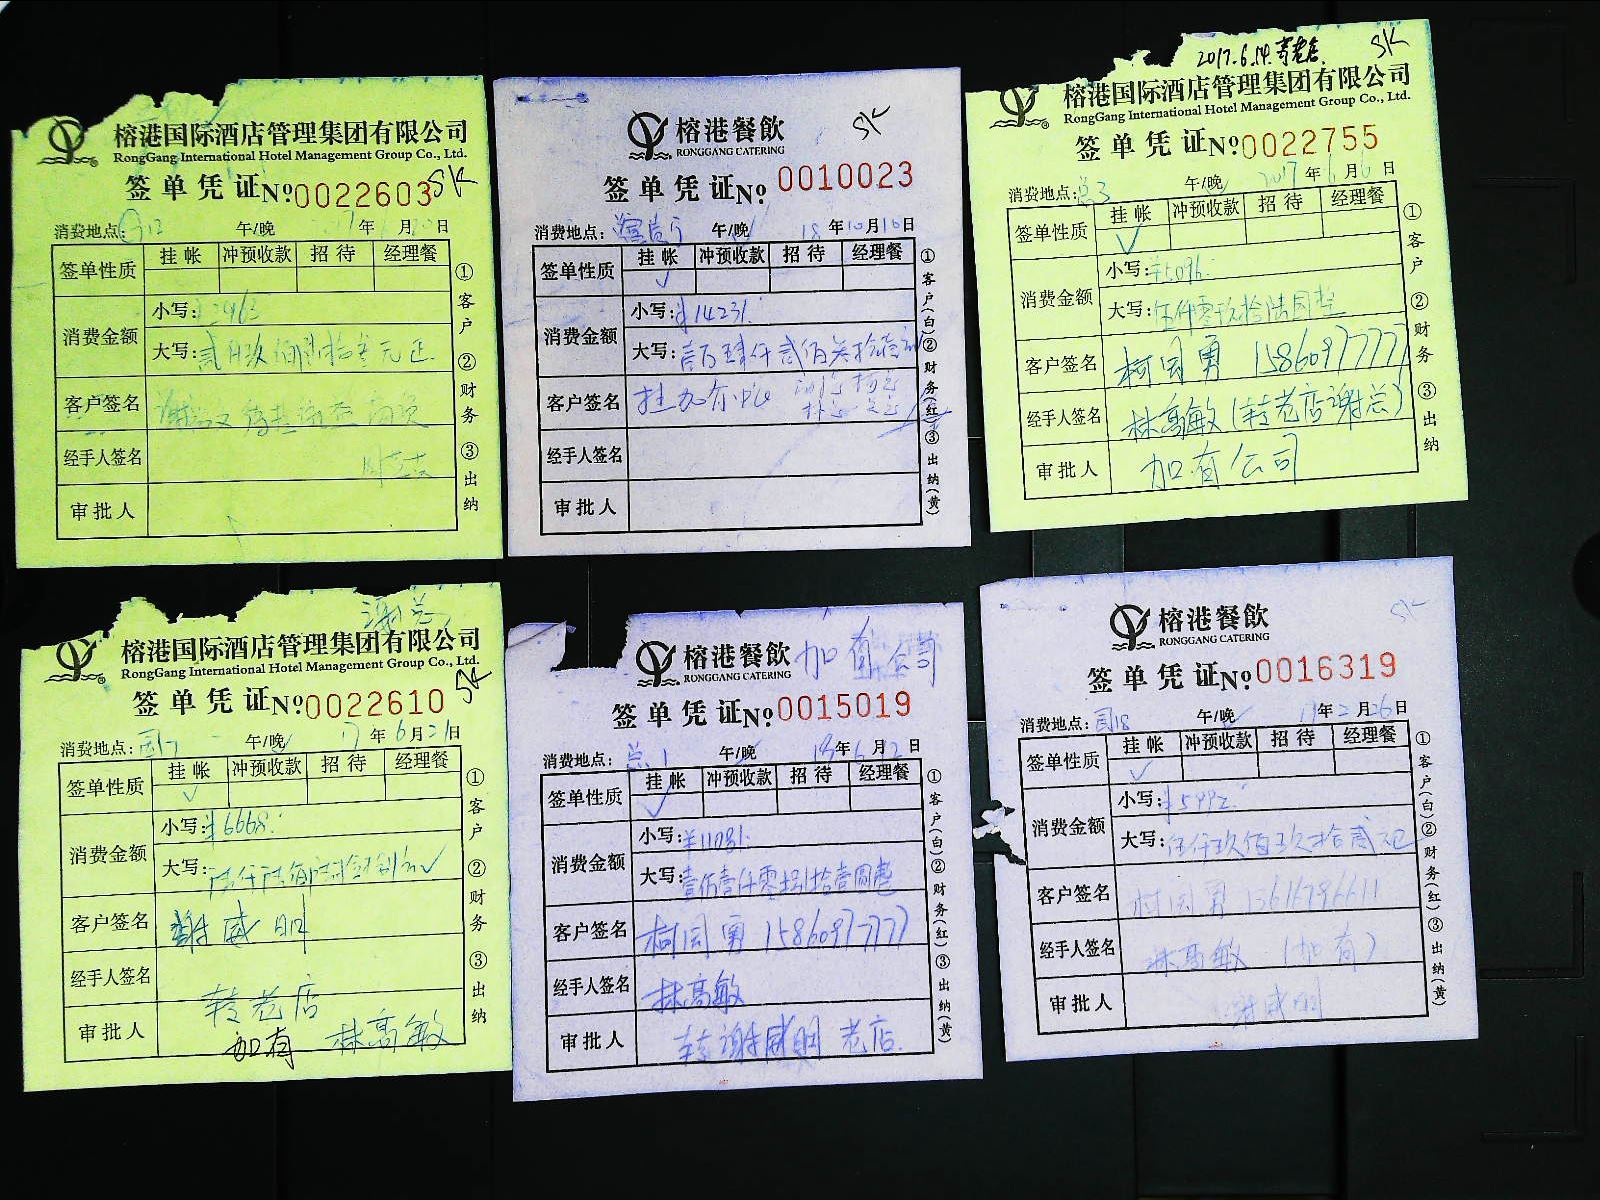 榕港国际酒店管理集团有限公司
RongGang International Hotel Management Group Co., Ltd.
签单凭证 №0022603 SK
消费地点: 午/晚 年 月 日
签单性质 挂帐 冲预收款 招待 经理餐
消费金额
小写:¥2963
大写:贰仟玖佰陆拾叁元正
客户签名
经手人签名
审批人
①客户 ②财务 ③出纳
榕港餐飲 SK
RONGGANG CATERING
签单凭证 №0010023
消费地点: 午/晚 18年10月10日
签单性质 挂帐 冲预收款 招待 经理餐
✓
消费金额
小写:¥14231.
大写:壹万肆仟贰佰叁拾壹元
客户签名 挂加有中心
经手人签名
审批人
①客户(白)②财务(红)③出纳(黄)
2017.6.14.黄老店. SK
榕港国际酒店管理集团有限公司
RongGang International Hotel Management Group Co., Ltd.
签单凭证 №0022755
消费地点:总3 午/晚 2017年6月6日
签单性质 挂帐 冲预收款 招待 经理餐
✓
消费金额
小写:¥5096.
大写:伍仟零玖拾陆圆整
客户签名 柯国勇 15860977777
经手人签名 林高敏(转老店谢总)
审批人 加有公司
①客户 ②财务 ③出纳
谢总
榕港国际酒店管理集团有限公司
RongGang International Hotel Management Group Co., Ltd.
签单凭证 №0022610 SK
消费地点: 午/晚 17年6月21日
签单性质 挂帐 冲预收款 招待 经理餐
✓
消费金额
小写:¥6668.
大写:陆仟陆佰陆拾捌元
客户签名 谢威明
经手人签名 转老店
审批人 加有 林高敏
①客户 ②财务 ③出纳
榕港餐飲 加有
RONGGANG CATERING
签单凭证 №0015019
消费地点:总1 午/晚 年6月12日
签单性质 挂帐 冲预收款 招待 经理餐
✓
消费金额
小写:¥11081.
大写:壹万壹仟零捌拾壹圆整
客户签名 柯国勇 15860977777
经手人签名 林高敏
审批人 转谢威明 老店.
①客户(白)②财务(红)③出纳(黄)
榕港餐飲 SK
RONGGANG CATERING
签单凭证 №0016319
消费地点:司18 午/晚 年2月26日
签单性质 挂帐 冲预收款 招待 经理餐
✓
消费金额
小写:¥5992.
大写:伍仟玖佰玖拾贰元正
客户签名 柯国勇 13616796611
经手人签名 林高敏(加有)
审批人 谢威明
①客户(白)②财务(红)③出纳(黄)